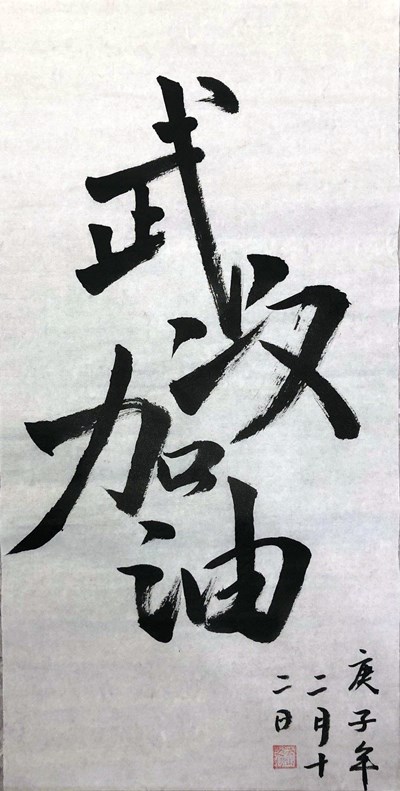 武汉
加油
庚子年
二月十
二日